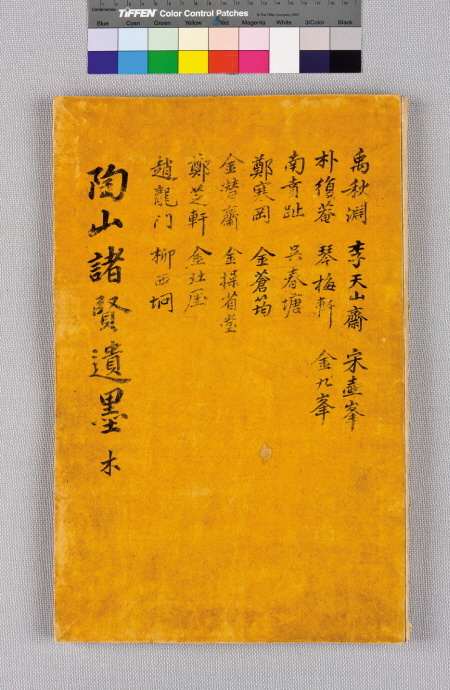 TIFFEN Color Control Patches
Blue Cyan Green Yellow Red Magenta White 3/Color Black
禹秋淵 李天山齋 宋壺峯
朴復菴 琴梅軒 金九峯
南賁趾 吳春塘
鄭寒岡 金蒼筠
金潛齋 金操省堂
鄭芝軒 金社
趙龍門 柳西坰
陶山諸賢遺墨 木